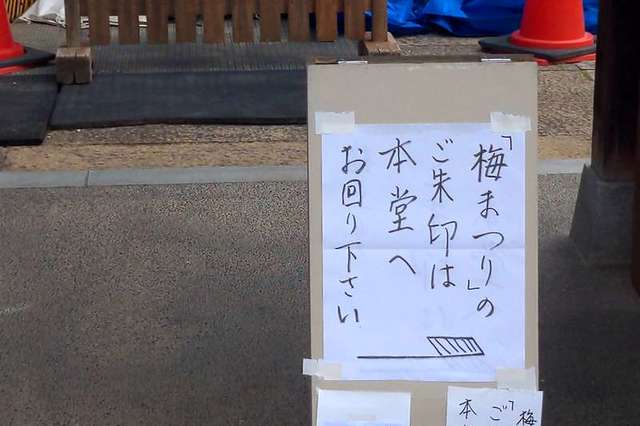 「梅まつり」の
ご朱印は
本堂へ
お回り下さい
「梅
ご
本